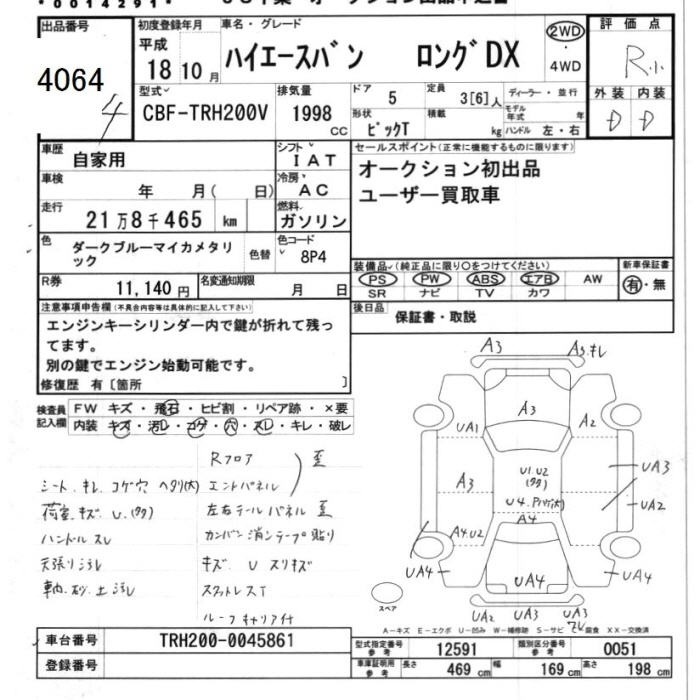 0014291
出品番号
4064
4
初度登録年月
平成
18 10 月
車名・グレード
ハイエースバン ロングDX
2WD
4WD
評価点
R小
型式
CBF-TRH200V
排気量
1998 CC
ドア 5
定員 3[6]人
形状 ビックT
積載 kg
ディーラー・並行
モデル年式 年
ハンドル 左・右
外装 内装
D D
車歴 自家用
車検 年 月( 日)
走行 21万8千465 km
色 ダークブルーマイカメタリック
色替
シフト IAT
冷房 AC
燃料 ガソリン
色コード 8P4
R券 11,140 円
名変通知期限 月 日
セールスポイント(正常に機能するものに限ります)
オークション初出品
ユーザー買取車
装備品(純正品に限り○をつけてください)
PS PW ABS エアB AW
SR ナビ TV カワ
新車保証書
有・無
後日品 保証書・取説
注意事項申告欄(不具合内容等は具体的に記入して下さい)
エンジンキーシリンダー内で鍵が折れて残っ
てます。
別の鍵でエンジン始動可能です。
修復歴 有[箇所 ]
検査員記入欄
FW キズ・飛石・ヒビ割・リペア跡・×要
内装 キズ・汚レ・コゲ・穴・スレ・キレ・破レ
シート、キレ、コゲ穴 ヘタリ(大)
荷室、キズ、U、(タタ)
ハンドルスレ
天張り汚レ
Rフロア
エンドパネル 歪
左右テールパネル 歪
カンバン消シテープ貼り
キズ U スリキズ
スタットレスT
ルーフキャリア付
A3
A3キレ
A3
UA1
A2
A3
U1.U2
(タタ)
UA3
UA2
A4
A4.U2
UA4
UA4
UA4
UA2 UA3 UA3
スペア
A－キズ E－エクボ U－凹み W－補修跡 S－サビ C－腐食 XX－交換済
車台番号 TRH200-0045861
登録番号
型式指定番号 参考 12591
類別区分番号 参考 0051
車庫証明用 参考 長さ 469 cm 幅 169 cm 高さ 198 cm